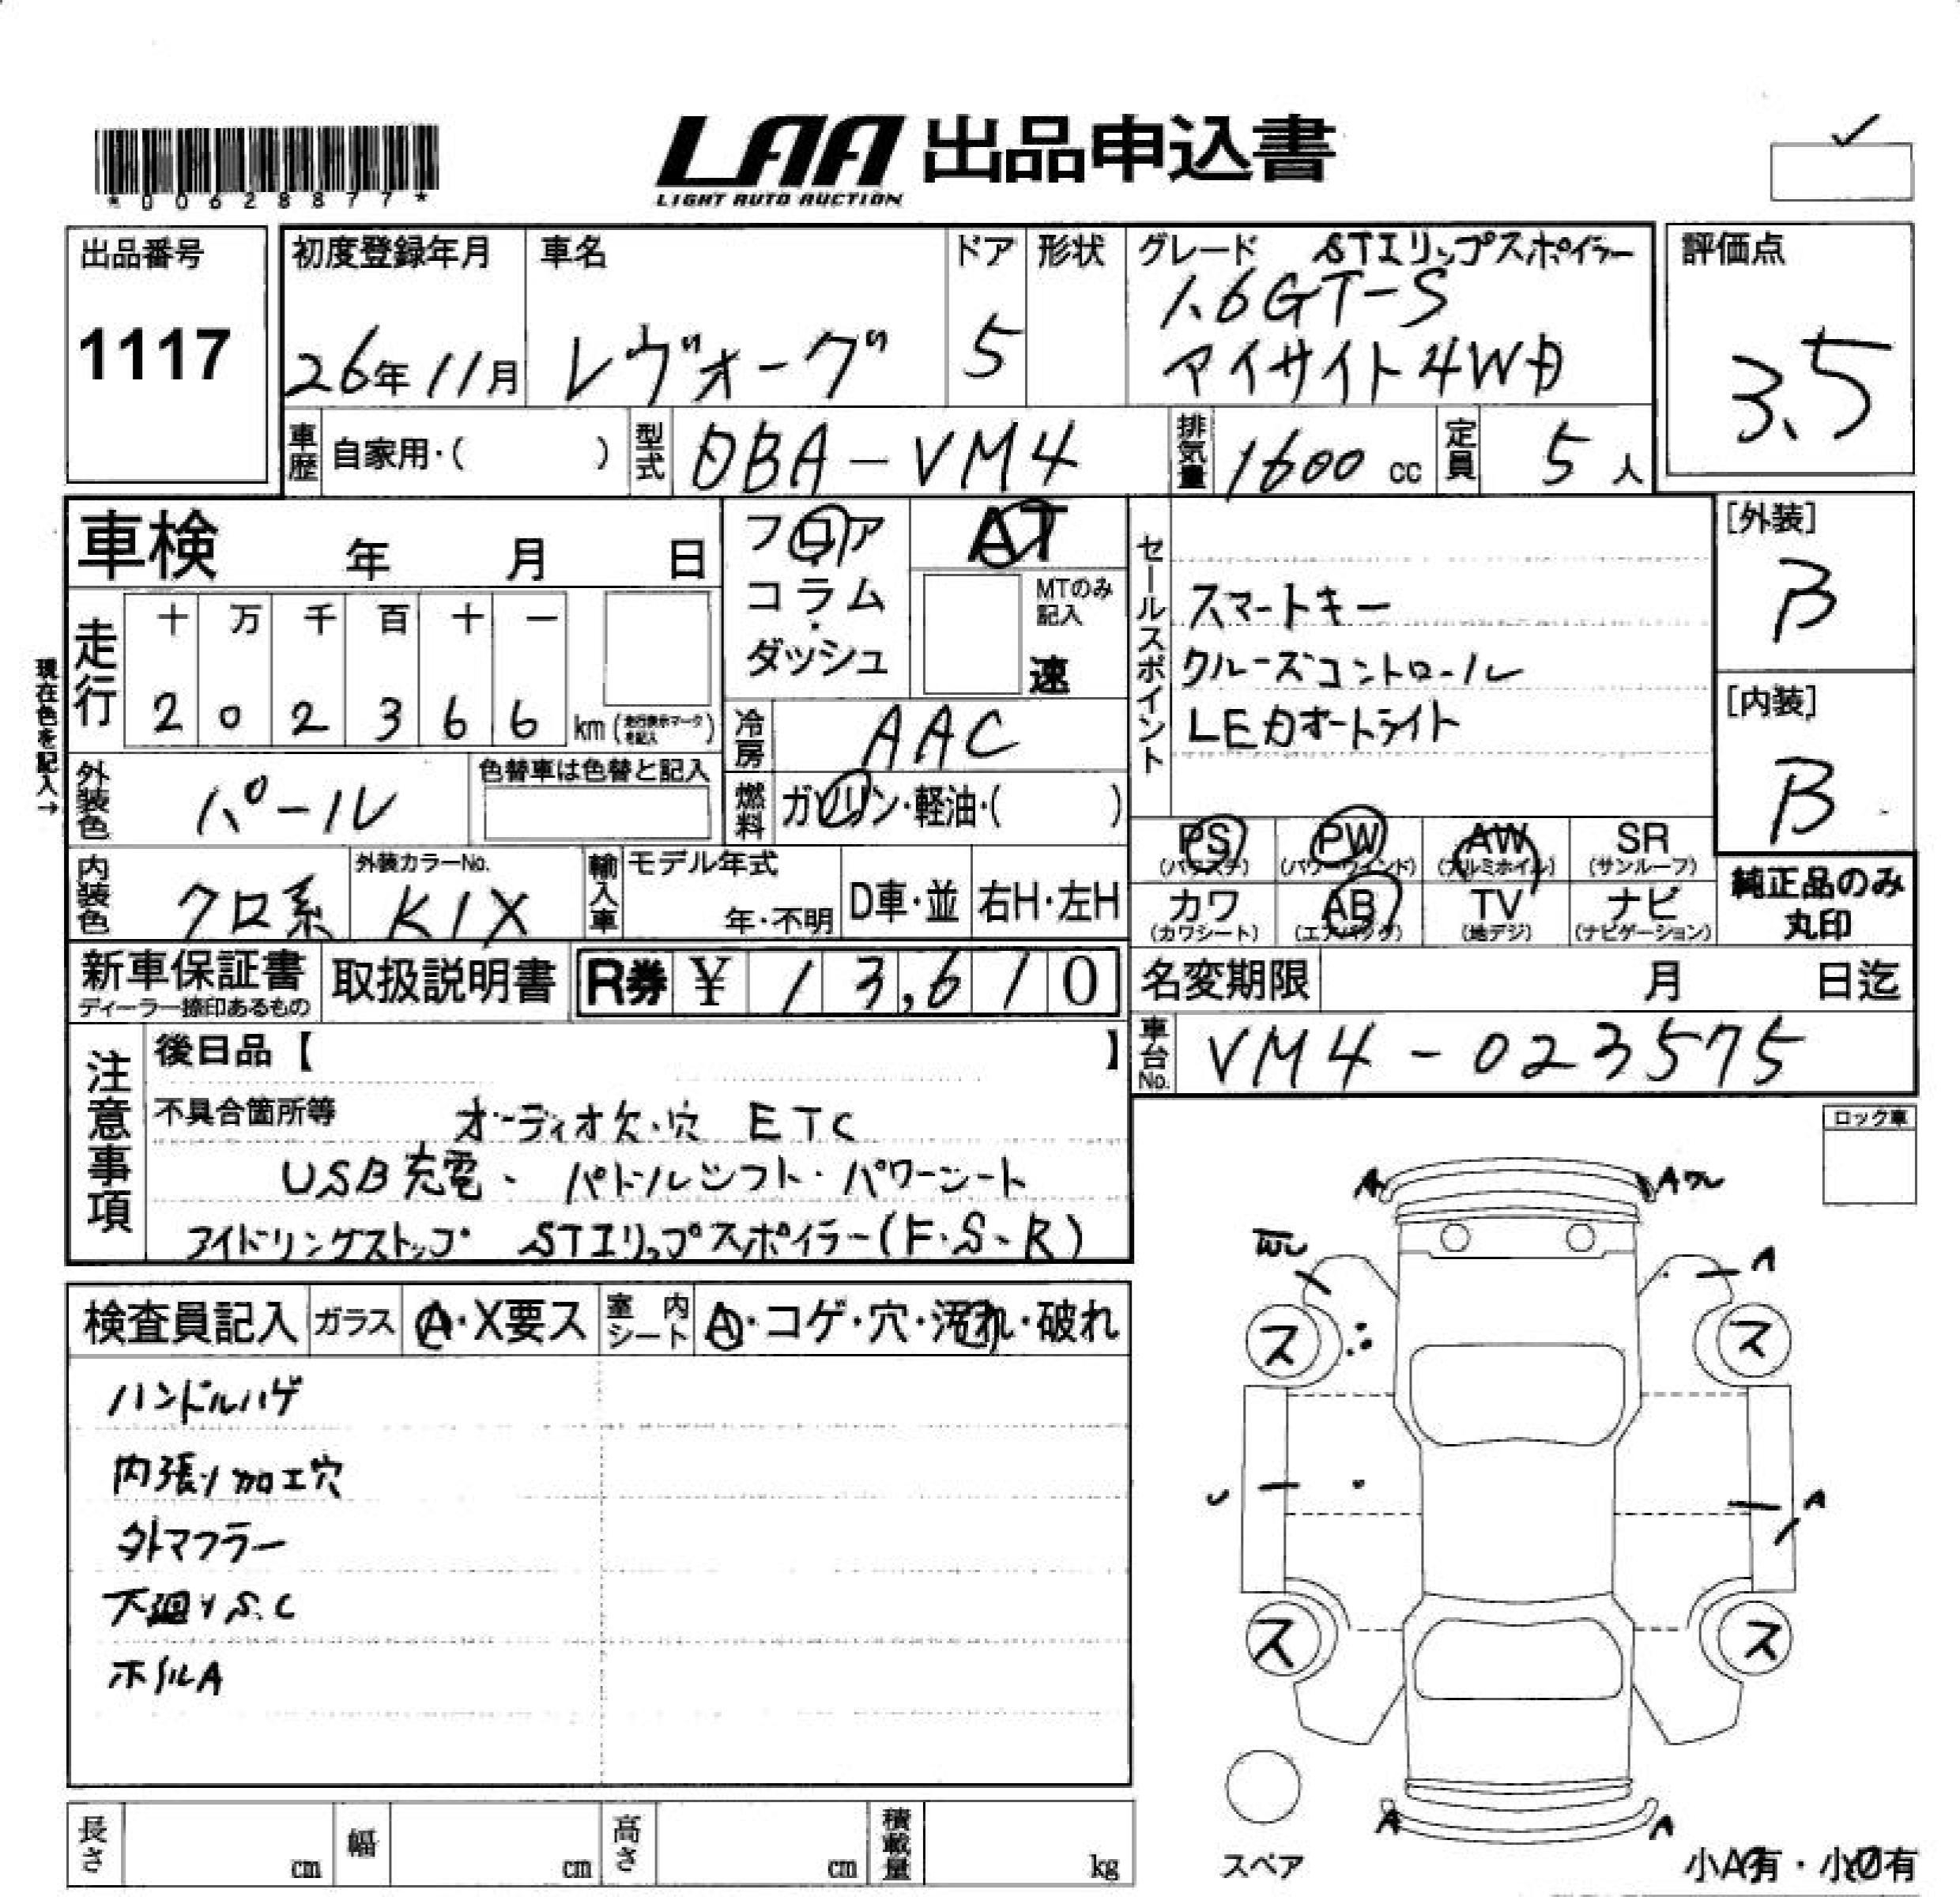 *00628877*
LAA 出品申込書
LIGHT AUTO AUCTION
出品番号
1117
初度登録年月
26年11月
車名
レヴォーグ
ドア
5
形状
グレード STIリップスポイラー
1.6GT-S
アイサイト4WD
評価点
3.5
車歴 自家用・( )
型式 DBA-VM4
排気量 1600 cc
定員 5 人
車検 年 月 日
フロア
コラム
ダッシュ
AT
MTのみ記入
速
現在色を記入→
走行
十 万 千 百 十 一
2 0 2 3 6 6 km (走行表示マークを記入)
冷房 AAC
燃料 ガソリン・軽油・( )
外装色 パール
色替車は色替と記入
内装色 クロ系
外装カラーNo. K1X
輸入車
モデル年式
年・不明
D車・並
右H・左H
セールスポイント
スマートキー
クルーズコントロール
LEDオートライト
[外装]
B
[内装]
B
PS (パワステ)
PW (パワーウィンド)
AW (アルミホイル)
SR (サンルーフ)
カワ (カワシート)
AB (エアバッグ)
TV (地デジ)
ナビ (ナビゲーション)
純正品のみ
丸印
新車保証書
ディーラー捺印あるもの
取扱説明書
R券 ¥ 13,610
名変期限 月 日迄
車台No. VM4-023575
注意事項
後日品【 】
不具合箇所等 オーディオ欠・穴 ETC
USB充電、パドルシフト・パワーシート
アイドリングストップ STIリップスポイラー(F・S・R)
ロック車
検査員記入
ガラス A・X要ス
室内シート A・コゲ・穴・汚れ・破れ
ハンドルハゲ
内張り加工穴
外マフラー
下廻りS.C
ホイルA
A
A
A
ス
ス
A
ス
ス
A
A
スペア
小A有・小U有
長さ cm
幅 cm
高さ cm
積載量 kg